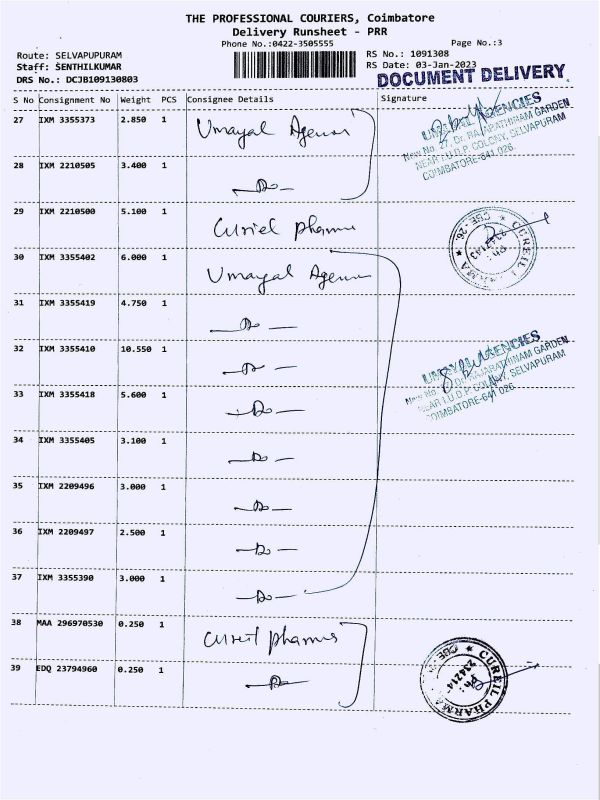 THE PROFESSIONAL COURIERS, Coimbatore
Delivery Runsheet - PRR
Phone No.:0422-3505555
Page No.:3
Route: SELVAPUPURAM
RS No.: 1091308
Staff: SENTHILKUMAR
RS Date: 03-Jan-2023
DRS No.: DCJB109130803
DOCUMENT DELIVERY
S No Consignment No Weight PCS Consignee Details Signature
27 IXM 3355373 2.850 1 Umayal Agencies
AGENCIES
New No. 27, Dr. RAJARATHINAM GARDEN
NEAR I.U.D.P. COLONY, SELVAPURAM
COIMBATORE-641 026
28 IXM 2210505 3.400 1 — Do —
29 IXM 2210500 5.100 1 Cureil pharma
CUREIL
CBE - 26.
Ph:
30 IXM 3355402 6.000 1 Umayal Agencies
31 IXM 3355419 4.750 1 — Do —
32 IXM 3355410 10.550 1 — Do —
AGENCIES
New No. Dr. RAJARATHINAM GARDEN
NEAR I.U.D.P. COLONY, SELVAPURAM
COIMBATORE-641 026
33 IXM 3355418 5.600 1 — Do —
34 IXM 3355405 3.100 1 — Do —
35 IXM 2209496 3.000 1 — Do —
36 IXM 2209497 2.500 1 — Do —
37 IXM 3355390 3.000 1 — Do —
38 MAA 296970530 0.250 1 Cureil pharma
39 EDQ 23794960 0.250 1 — Do —
CUREIL PHARMA
CBE
Ph: